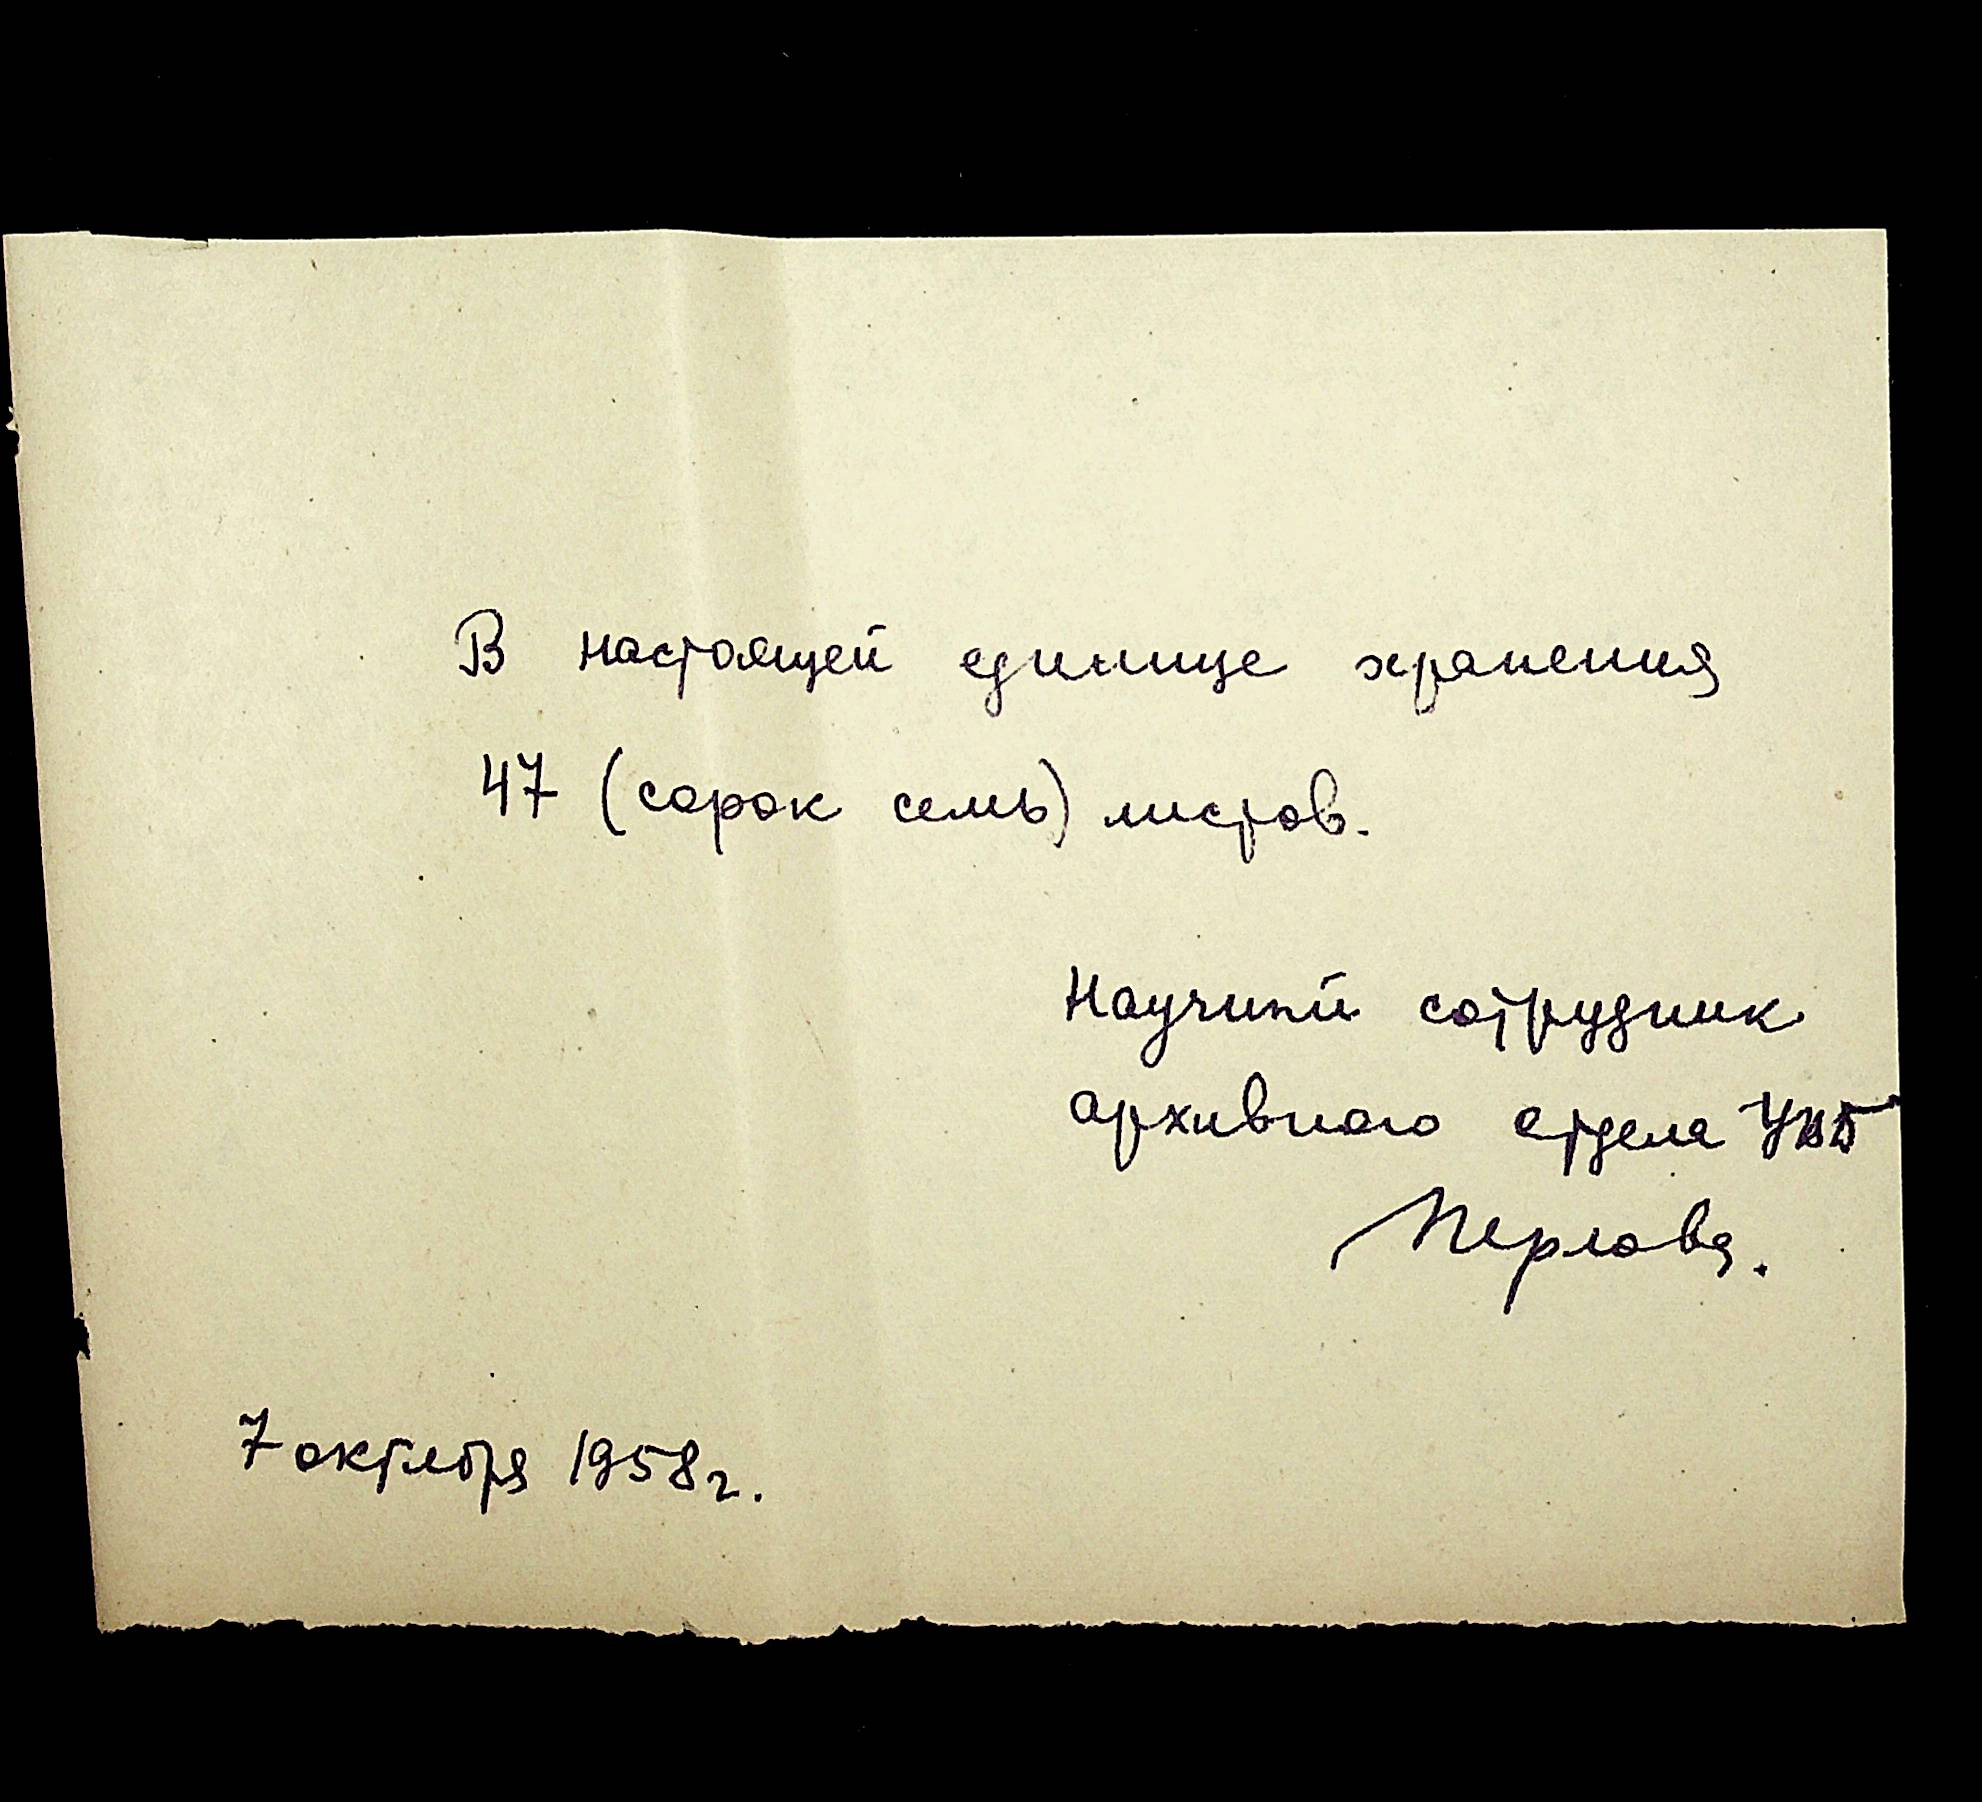 В настоящей единице хранения
47 (сорок семь) листов.
Научный сотрудник
архивного отдела
Перлова.
7 октября 1958 г.